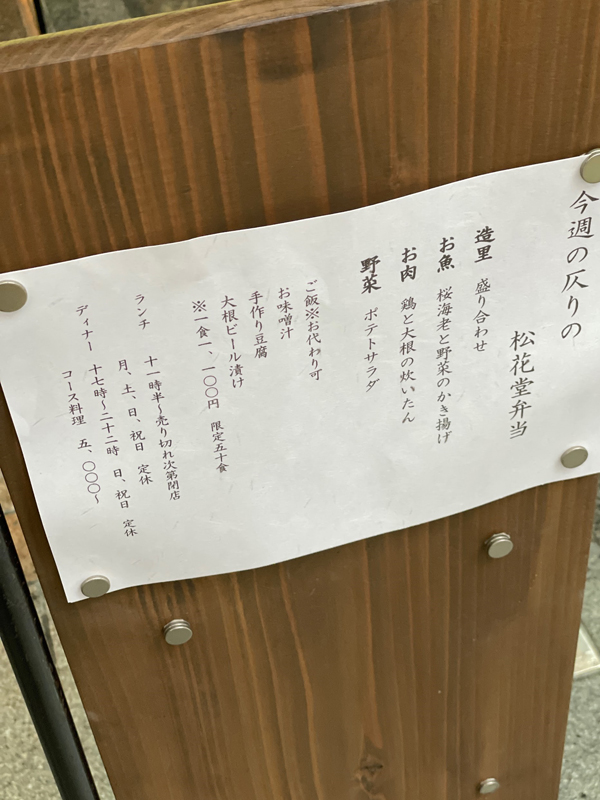 今週の仄りの
松花堂弁当
造里 盛り合わせ
お魚 桜海老と野菜のかき揚げ
お肉 鶏と大根の炊いたん
野菜 ポテトサラダ
ご飯※お代わり可
お味噌汁
手作り豆腐
大根ビール漬け
※一食一、一〇〇円 限定五十食
ランチ 十一時半〜売り切れ次第閉店
月、土、日、祝日 定休
ディナー 十七時〜二十二時 日、祝日 定休
コース料理 五、〇〇〇〜